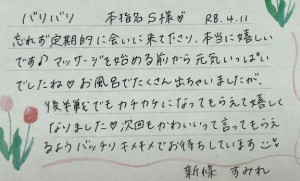 バリバリ 本指名S様♡ R8.4.11
忘れず定期的に会いに来て下さり、本当に嬉しい
です♪ マッサージを始める前から元気いっぱい
でしたね♡お風呂でたくさん出ちゃいましたが、
後半戦でもカチカチになってもらえて嬉しく
なりました♡次回もかわいいって言ってもらえ
るようバッチリキメキメでお待ちしています
新條 すみれ